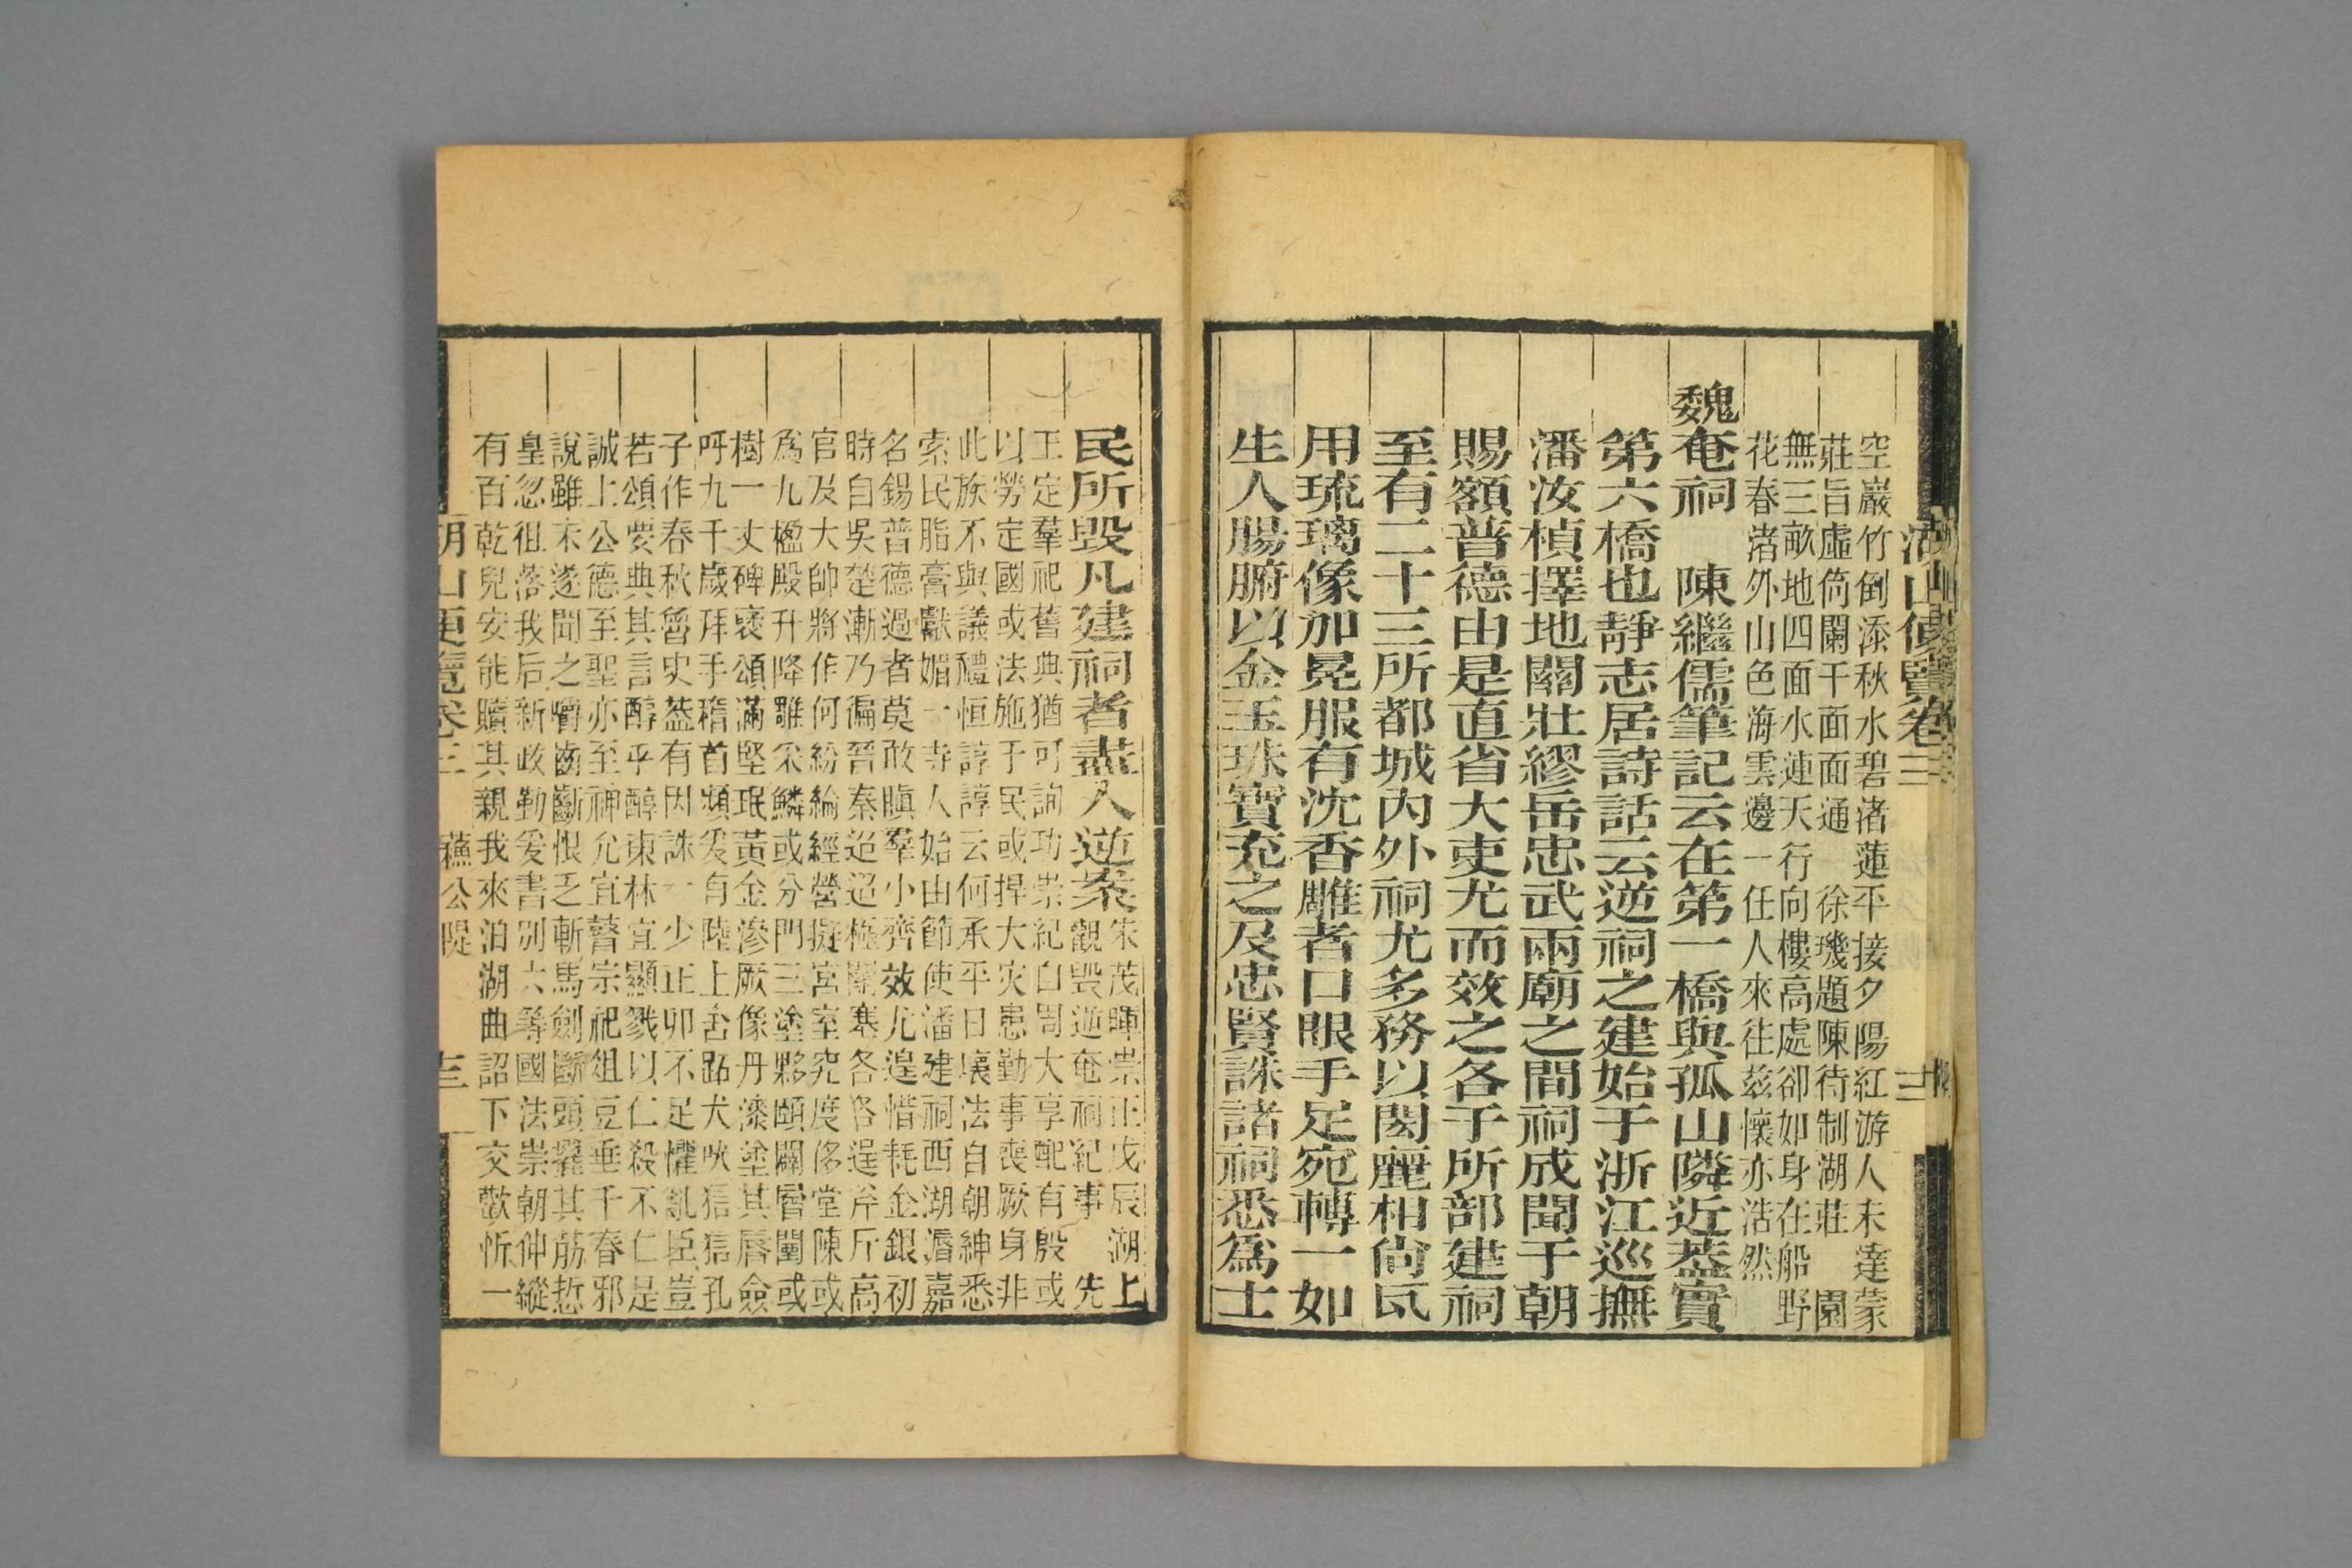 湖山便覽卷三
空巖竹倒添秋水碧渚蓮平接夕陽紅游人未達蒙
莊旨虛倚闌干面面通　徐璣題陳待制湖莊　園
無三畝地四面水連天行向樓高處卻如身在船野
花春渚外山色海雲邊一任人來往茲懷亦浩然
魏奄祠　陳繼儒筆記云在第一橋與孤山隣近葢實
第六橋也靜志居詩話云逆祠之建始于浙江巡撫
潘汝楨擇地關壯繆岳忠武兩廟之間祠成聞于朝
賜額普德由是直省大吏尤而效之各于所部建祠
至有二十三所都城內外祠尤多務以閎麗相尙瓦
用琉璃像加冕服有沈香雕者口眼手足宛轉一如
生人腸腑以金玉珠寶充之及忠賢誅諸祠悉爲士
民所毀凡建祠者盡入逆案
朱茂暉崇正戊辰湖上
觀毀逆奄祠紀事　先
王定羣祀舊典猶可詢功崇紀白閒大享配有殷或
以勞定國或法施于民或捍大灾患勤事喪厥身非
此族不與議禮恒諄諄云何承平日壞法自朝紳悉
索民脂膏獻媚一寺人始由節使潘建祠西湖漘嘉
名錫普德過者莫敢瞋羣小齊效尤遑惜耗金銀初
時自吳楚漸乃徧晉秦迢迢極關塞各各逞斧斤高
官及大帥將作何紛綸經營擬宮室究度侈堂陳或
爲九楹殿升降雕朵鱗或分門三塗夥頤闢層闉或
樹一丈碑褒頌滿堅珉黃金滲厥像丹漆塗其唇僉
呼九千歲拜手稽首頻爰有陸上舍跖犬吠狺狺孔
子作春秋魯史葢有因誅一少正卯不足懼亂臣豈
若頌要典其言醇乎醇東林宜顯戮以仁殺不仁是
誠上公德至聖亦至神允宜瞽宗祀俎豆垂千春邪
說雖未遂聞之嚼齒齗恨乏斬馬劍斷頭擢其筋悊
皇忽徂落我后新政勤爰書別六等國法崇朝伸縱
有百乾兒安能贖其親我來泊湖曲詔下交歡忻一
湖山便覽卷三　蘇公隄